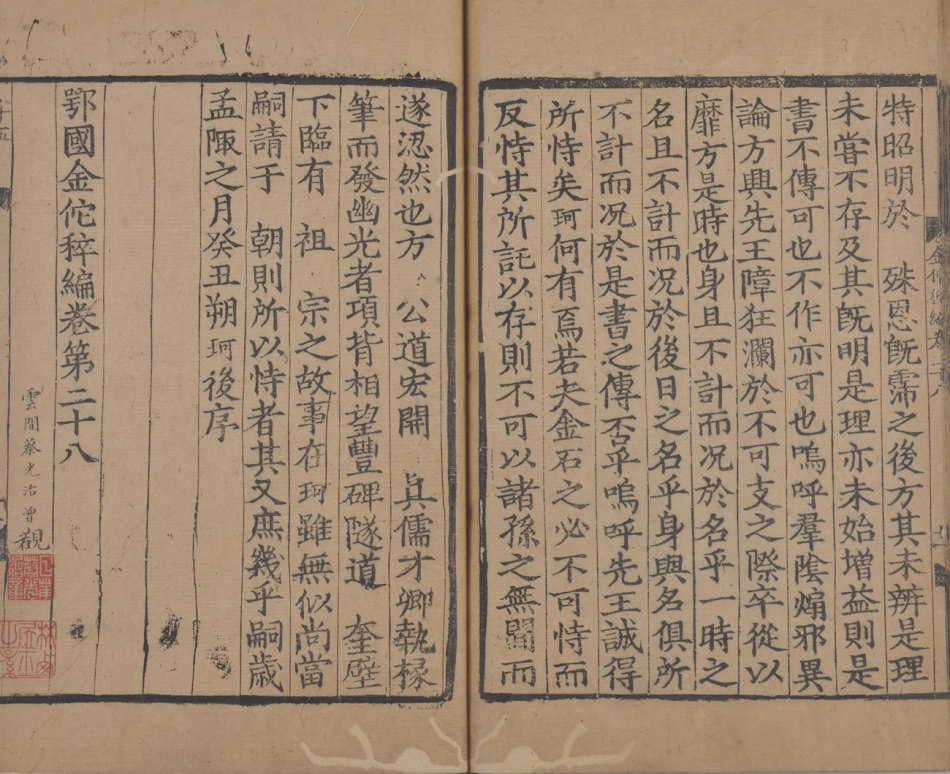 特昭明於　殊恩旣霈之後方其未辨是理
未嘗不存及其旣明是理亦未始增益則是
書不傳可也不作亦可也嗚呼羣陰煽邪異
論方興先王障狂瀾於不可支之際卒從以
靡方是時也身且不計而况於名乎一時之
名且不計而况於後日之名乎身與名俱所
不計而况於是書之傳否乎嗚呼先王誠得
所恃矣珂何有焉若夫金石之必不可恃而
反恃其所託以存則不可以諸孫之無聞而
遂涊然也方　公道宏開　眞儒才卿執椽
筆而發幽光者項背相望豐碑隧道　奎壁
下臨有　祖　宗之故事在珂雖無似尚當
嗣請于　朝則所以恃者其又庶幾乎嗣歲
孟陬之月癸丑朔珂後序
鄂國金佗稡編卷第二十八
雲間蔡光治曾觀